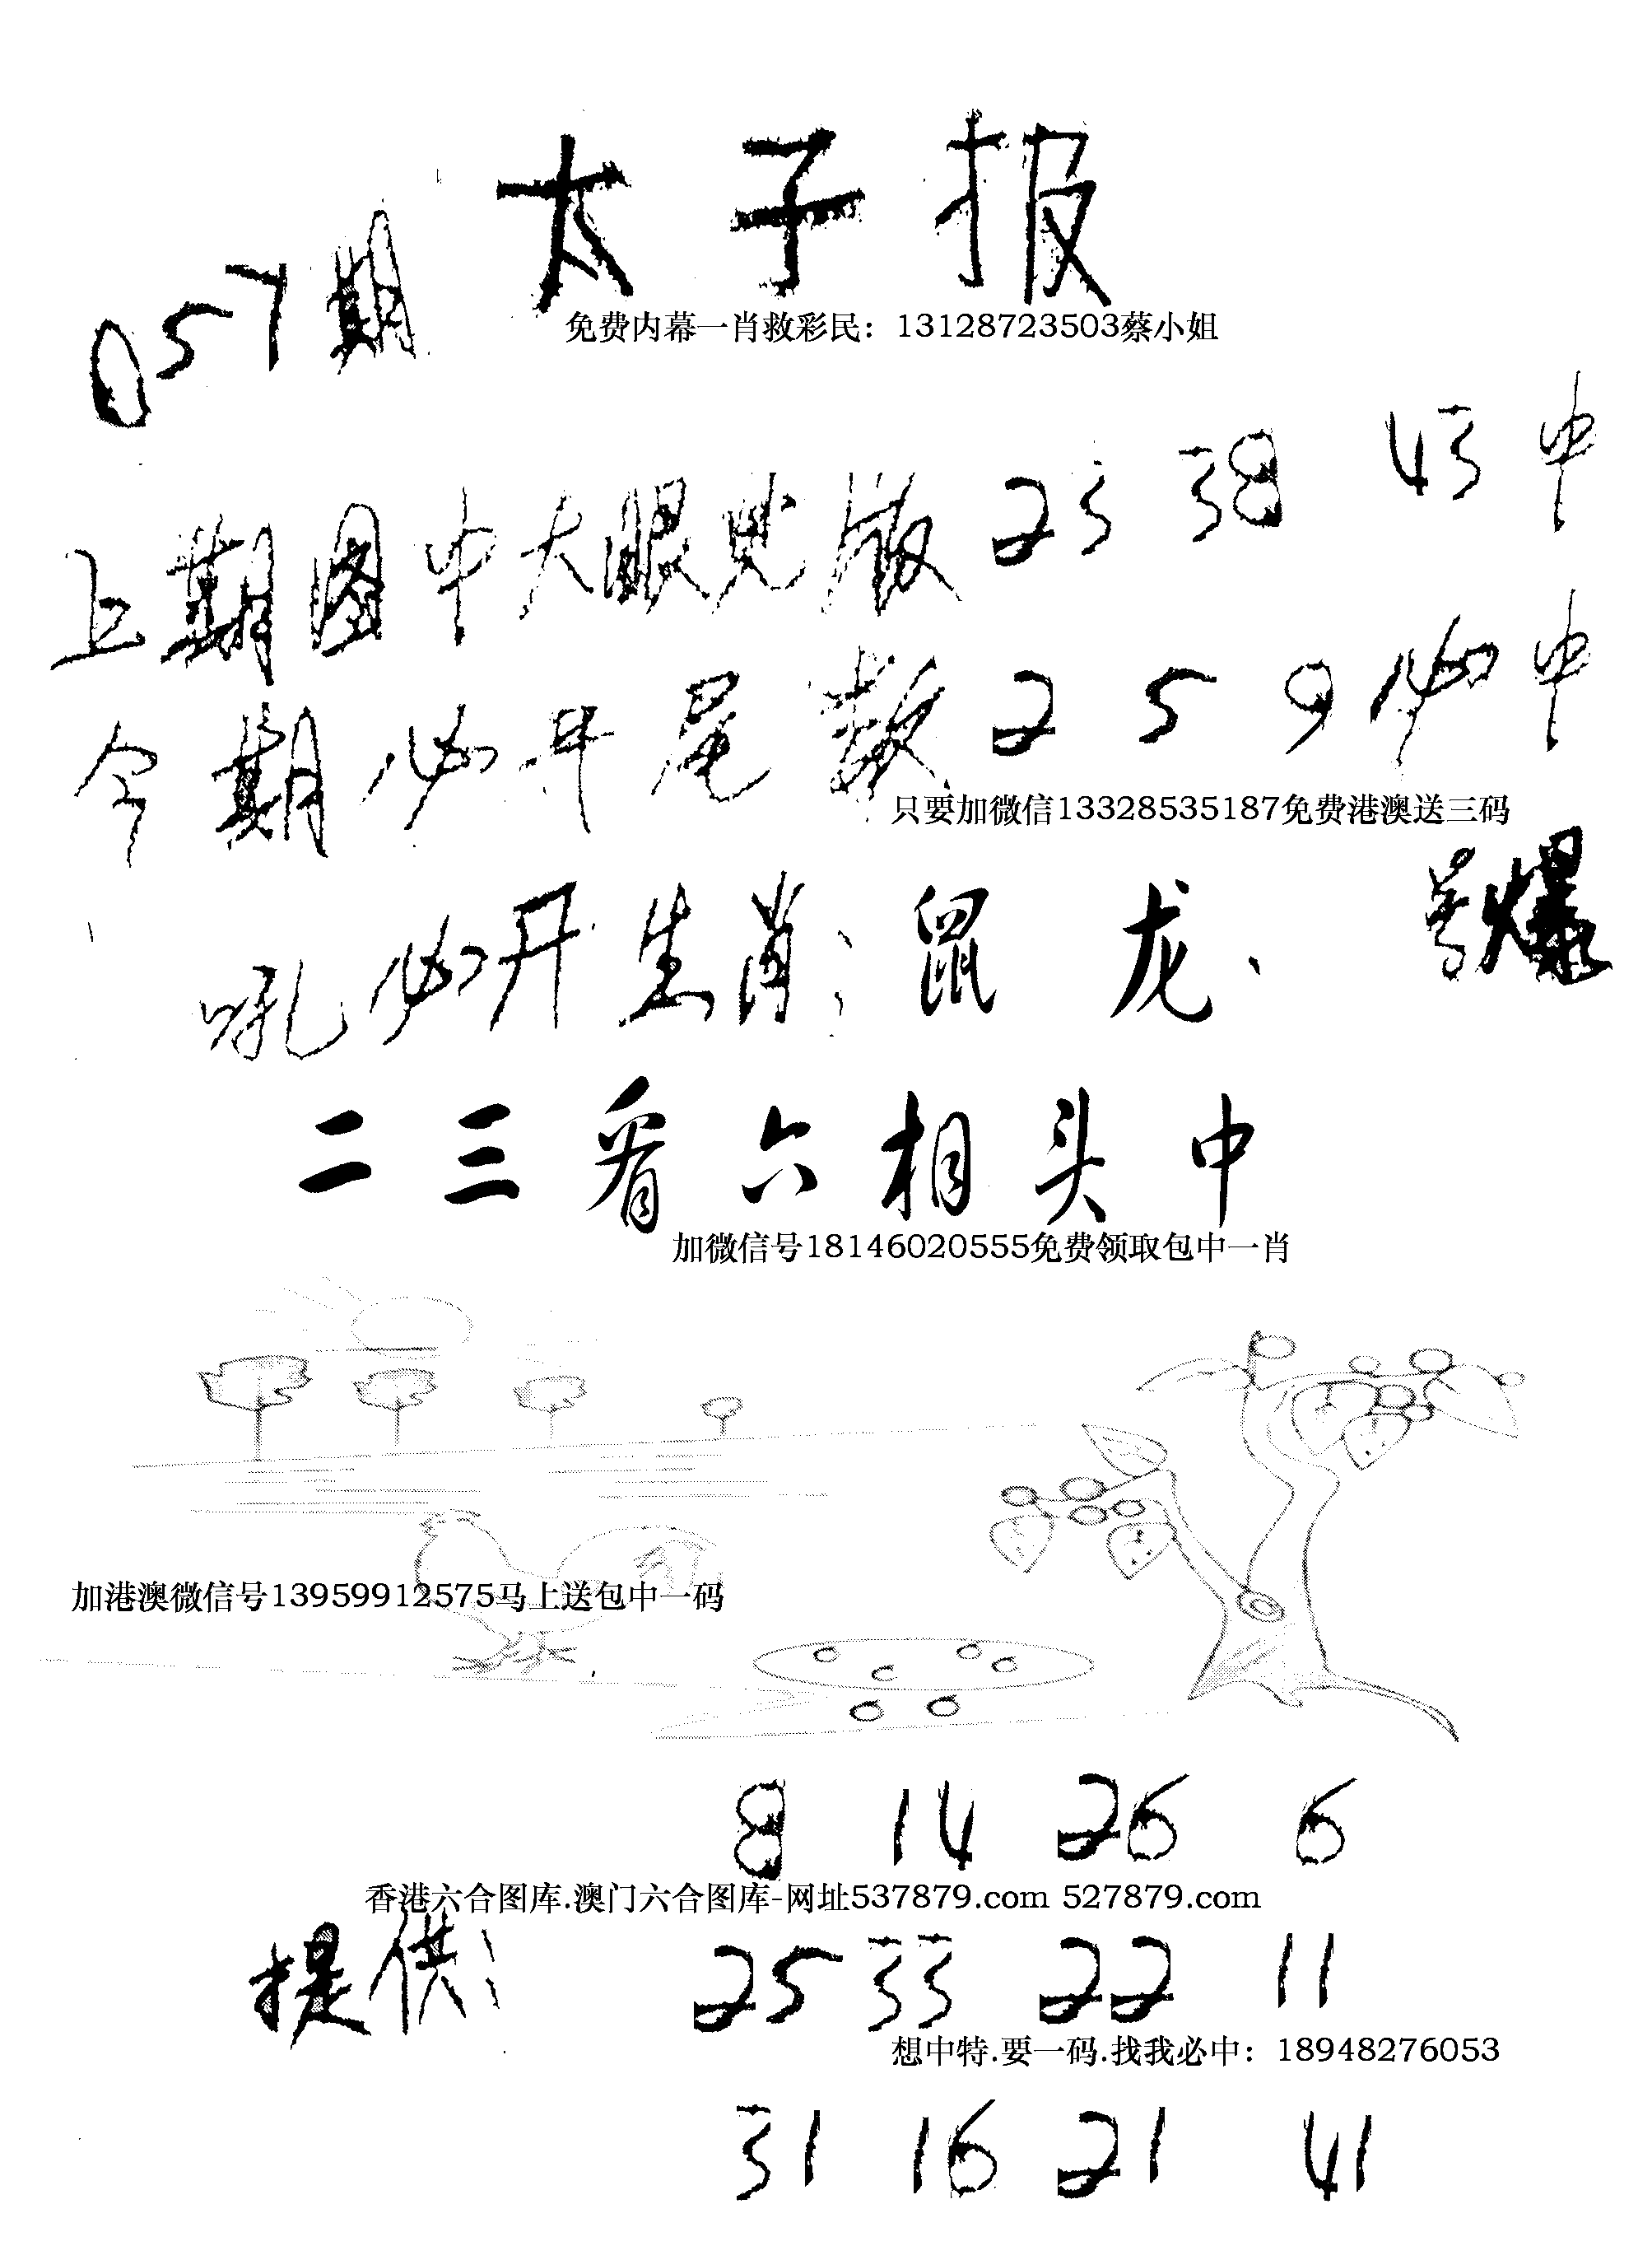 太子报
057期
免费内幕一肖救彩民：13128723503蔡小姐
上期图中大眼兇版 23 38 43 中
今期必开尾数 2 5 9 必中
只要加微信13328535187免费港澳送三码
吼必开生肖：鼠 龙、 号爆
二三看六相头中
加微信号18146020555免费领取包中一肖
加港澳微信号13959912575马上送包中一码
8 14 26 6
香港六合图库.澳门六合图库-网址537879.com 527879.com
提供： 25 33 22 11
想中特.要一码.找我必中：18948276053
31 16 21 41